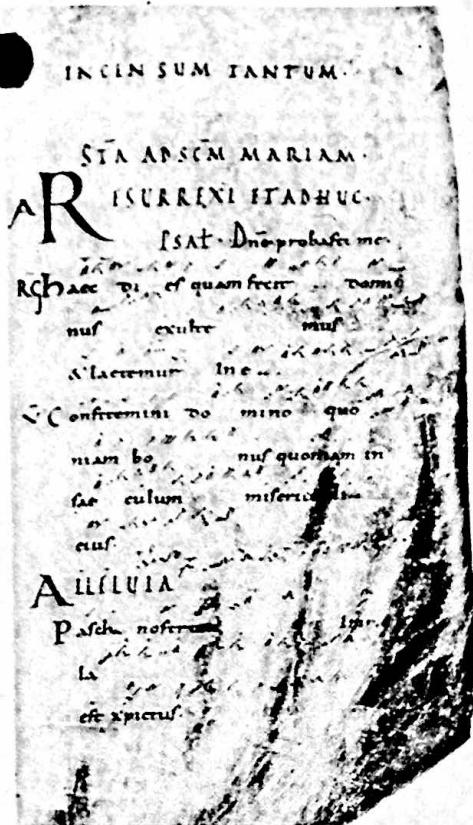 INCENSUM TANTUM.
STĀ AD SCĀM MARIAM.
A RESURREXI ET ADHUC.
PSAT. Dnē probasti me
RG haec di es quam fecit domi
nus exulte mus
& laetemur In e
V Confitemini do mino quo
niam bo nus quoniam in
sae culum
eius.
ALLELUIA
Pascha nostrum Imo
la
est xpictus.